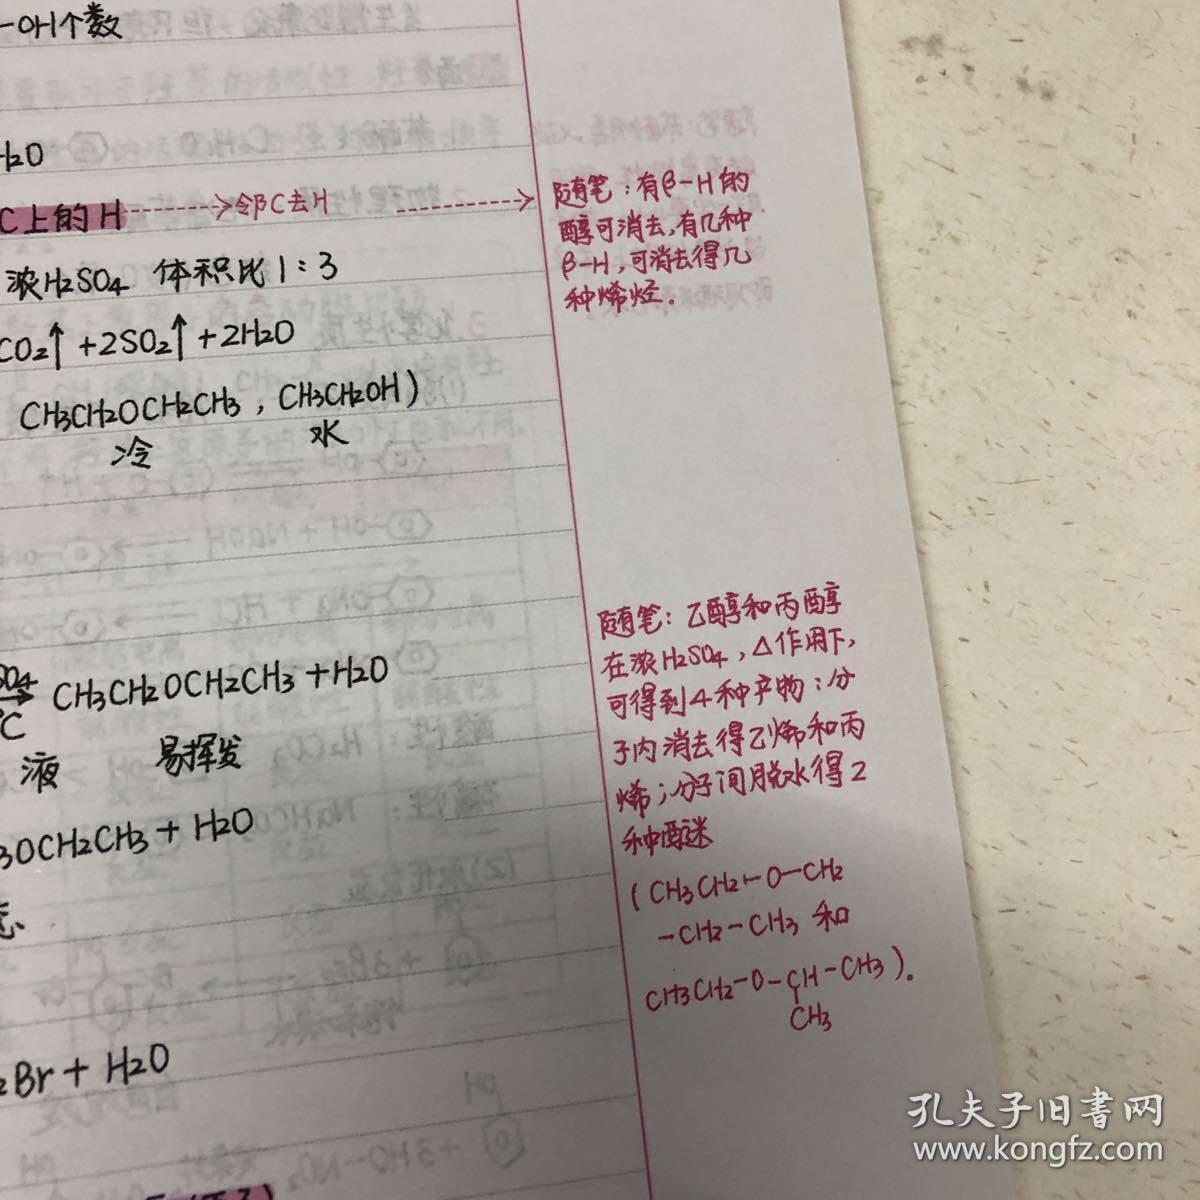 -OH个数
H2O
C上的H -----> 邻βC去H ----->
浓H2SO4 体积比1:3
CO2↑+2SO2↑+2H2O
CH3CH2OCH2CH3, CH3CH2OH)
冷 水
SO4
→ CH3CH2OCH2CH3+H2O
℃
液 易挥发
3OCH2CH3+H2O
2Br+H2O
随笔:有β-H的
醇可消去,有几种
β-H,可消去得几
种烯烃.
随笔:乙醇和丙醇
在浓H2SO4,△作用下,
可得到4种产物:分
子内消去得乙烯和丙
烯;分子间脱水得2
种醚
(CH3CH2-O-CH2
-CH2-CH3 和
CH3CH2-O-CH-CH3).
CH3
孔夫子旧书网
www.kongfz.com